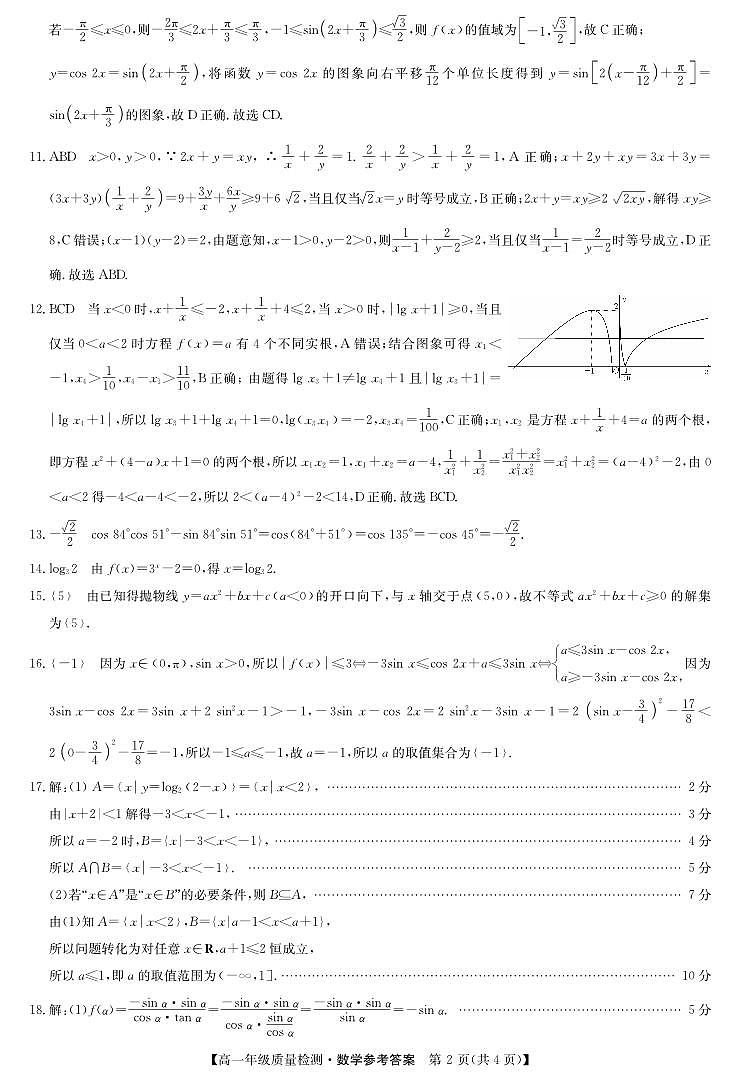 若−π/2≤x≤0,则−2π/3≤2x+π/3≤π/3,−1≤sin(2x+π/3)≤√3/2,则 f(x)的值域为[−1,√3/2],故 C 正确;
y=cos 2x=sin(2x+π/2),将函数 y=cos 2x 的图象向右平移π/12个单位长度得到 y=sin[2(x−π/12)+π/2]=
sin(2x+π/3)的图象,故 D 正确.故选 CD.
11.ABD x>0,y>0,∵2x+y=xy,∴1/x+2/y=1. 2/x+2/y>1/x+2/y=1,A 正确;x+2y+xy=3x+3y=
(3x+3y)(1/x+2/y)=9+3y/x+6x/y≥9+6√2,当且仅当√2x=y 时等号成立,B 正确;2x+y=xy≥2√2xy,解得 xy≥
8,C 错误;(x−1)(y−2)=2,由题意知,x−1>0,y−2>0,则1/(x−1)+2/(y−2)≥2,当且仅当1/(x−1)=2/(y−2)时等号成立,D 正
确.故选 ABD.
12.BCD 当 x<0 时,x+1/x≤−2,x+1/x+4≤2,当 x>0 时,|lg x+1|≥0,当且
仅当 0<a<2 时方程 f(x)=a 有 4 个不同实根,A 错误;结合图象可得 x₁<
−1,x₄>1/10,x₄−x₁>11/10,B 正确;由题得 lg x₃+1≠lg x₄+1 且|lg x₃+1|=
|lg x₄+1|,所以 lg x₃+1+lg x₄+1=0,lg(x₃x₄)=−2,x₃x₄=1/100,C 正确;x₁,x₂ 是方程 x+1/x+4=a 的两个根,
即方程 x²+(4−a)x+1=0 的两个根,所以 x₁x₂=1,x₁+x₂=a−4,1/x₁²+1/x₂²=(x₁²+x₂²)/(x₁²x₂²)=x₁²+x₂²=(a−4)²−2,由 0
<a<2 得−4<a−4<−2,所以 2<(a−4)²−2<14,D 正确.故选 BCD.
2
y
−1
O
1/10
x
13.−√2/2 cos 84°cos 51°−sin 84°sin 51°=cos(84°+51°)=cos 135°=−cos 45°=−√2/2.
14.log₃2 由 f(x)=3ˣ−2=0,得 x=log₃2.
15.{5} 由已知得抛物线 y=ax²+bx+c(a<0)的开口向下,与 x 轴交于点(5,0),故不等式 ax²+bx+c≥0 的解集
为{5}.
16.{−1} 因为 x∈(0,π),sin x>0,所以|f(x)|≤3⇔−3sin x≤cos 2x+a≤3sin x⇔{a≤3sin x−cos 2x, a≥−3sin x−cos 2x,因为
3sin x−cos 2x=3sin x+2 sin²x−1>−1,−3sin x−cos 2x=2 sin²x−3sin x−1=2(sin x−3/4)²−17/8<
2(0−3/4)²−17/8=−1,所以−1≤a≤−1,故 a=−1,所以 a 的取值集合为{−1}.
17.解:(1) A={x|y=log₂(2−x)}={x|x<2}, …… 2 分
由|x+2|<1 解得−3<x<−1, …… 3 分
所以 a=−2 时,B={x|−3<x<−1}, …… 4 分
所以 A∩B={x|−3<x<−1}. …… 5 分
(2)若“x∈A”是“x∈B”的必要条件,则 B⊆A, …… 7 分
由(1)知 A={x|x<2},B={x|a−1<x<a+1},
所以问题转化为对任意 x∈R,a+1≤2 恒成立,
所以 a≤1,即 a 的取值范围为(−∞,1]. …… 10 分
18.解:(1)f(α)=(−sin α·sin α)/(cos α·tan α)=(−sin α·sin α)/(cos α·sin α/cos α)=(−sin α·sin α)/sin α=−sin α. …… 5 分
【高一年级质量检测·数学参考答案 第 2 页(共 4 页)】